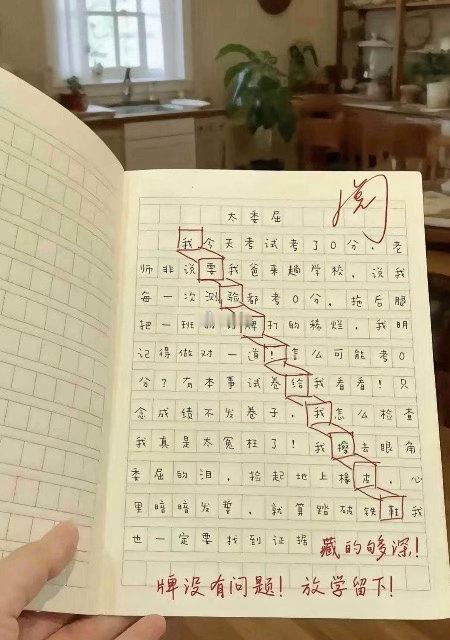 阅
太委屈
我今天考试考了0分，老
师非说要我爸来趟学校，说我
每一次测验都考0分，拖后腿
把一班的牌打的稀烂，我明
记得做对一道！怎么可能考0
分？有本事试卷给我看看！只
念成绩不发卷子，我怎么检查
我真是太冤枉了！我擦去眼角
委屈的泪，捡起地上橡皮，心
里暗暗发誓，就算踏破铁鞋我
也一定要找到证据
藏的够深！
牌没有问题！放学留下！